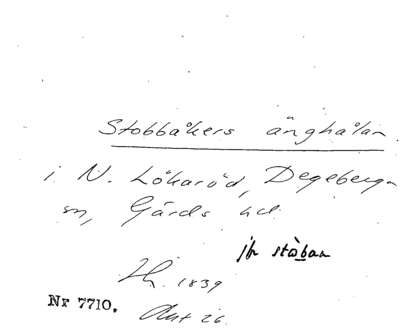 Stobbåkers änghålan
i N. Lökaröd, Degeberga
sn, Gärds hd.
jfr stòban
1839
Nr 7710. Akt 26.